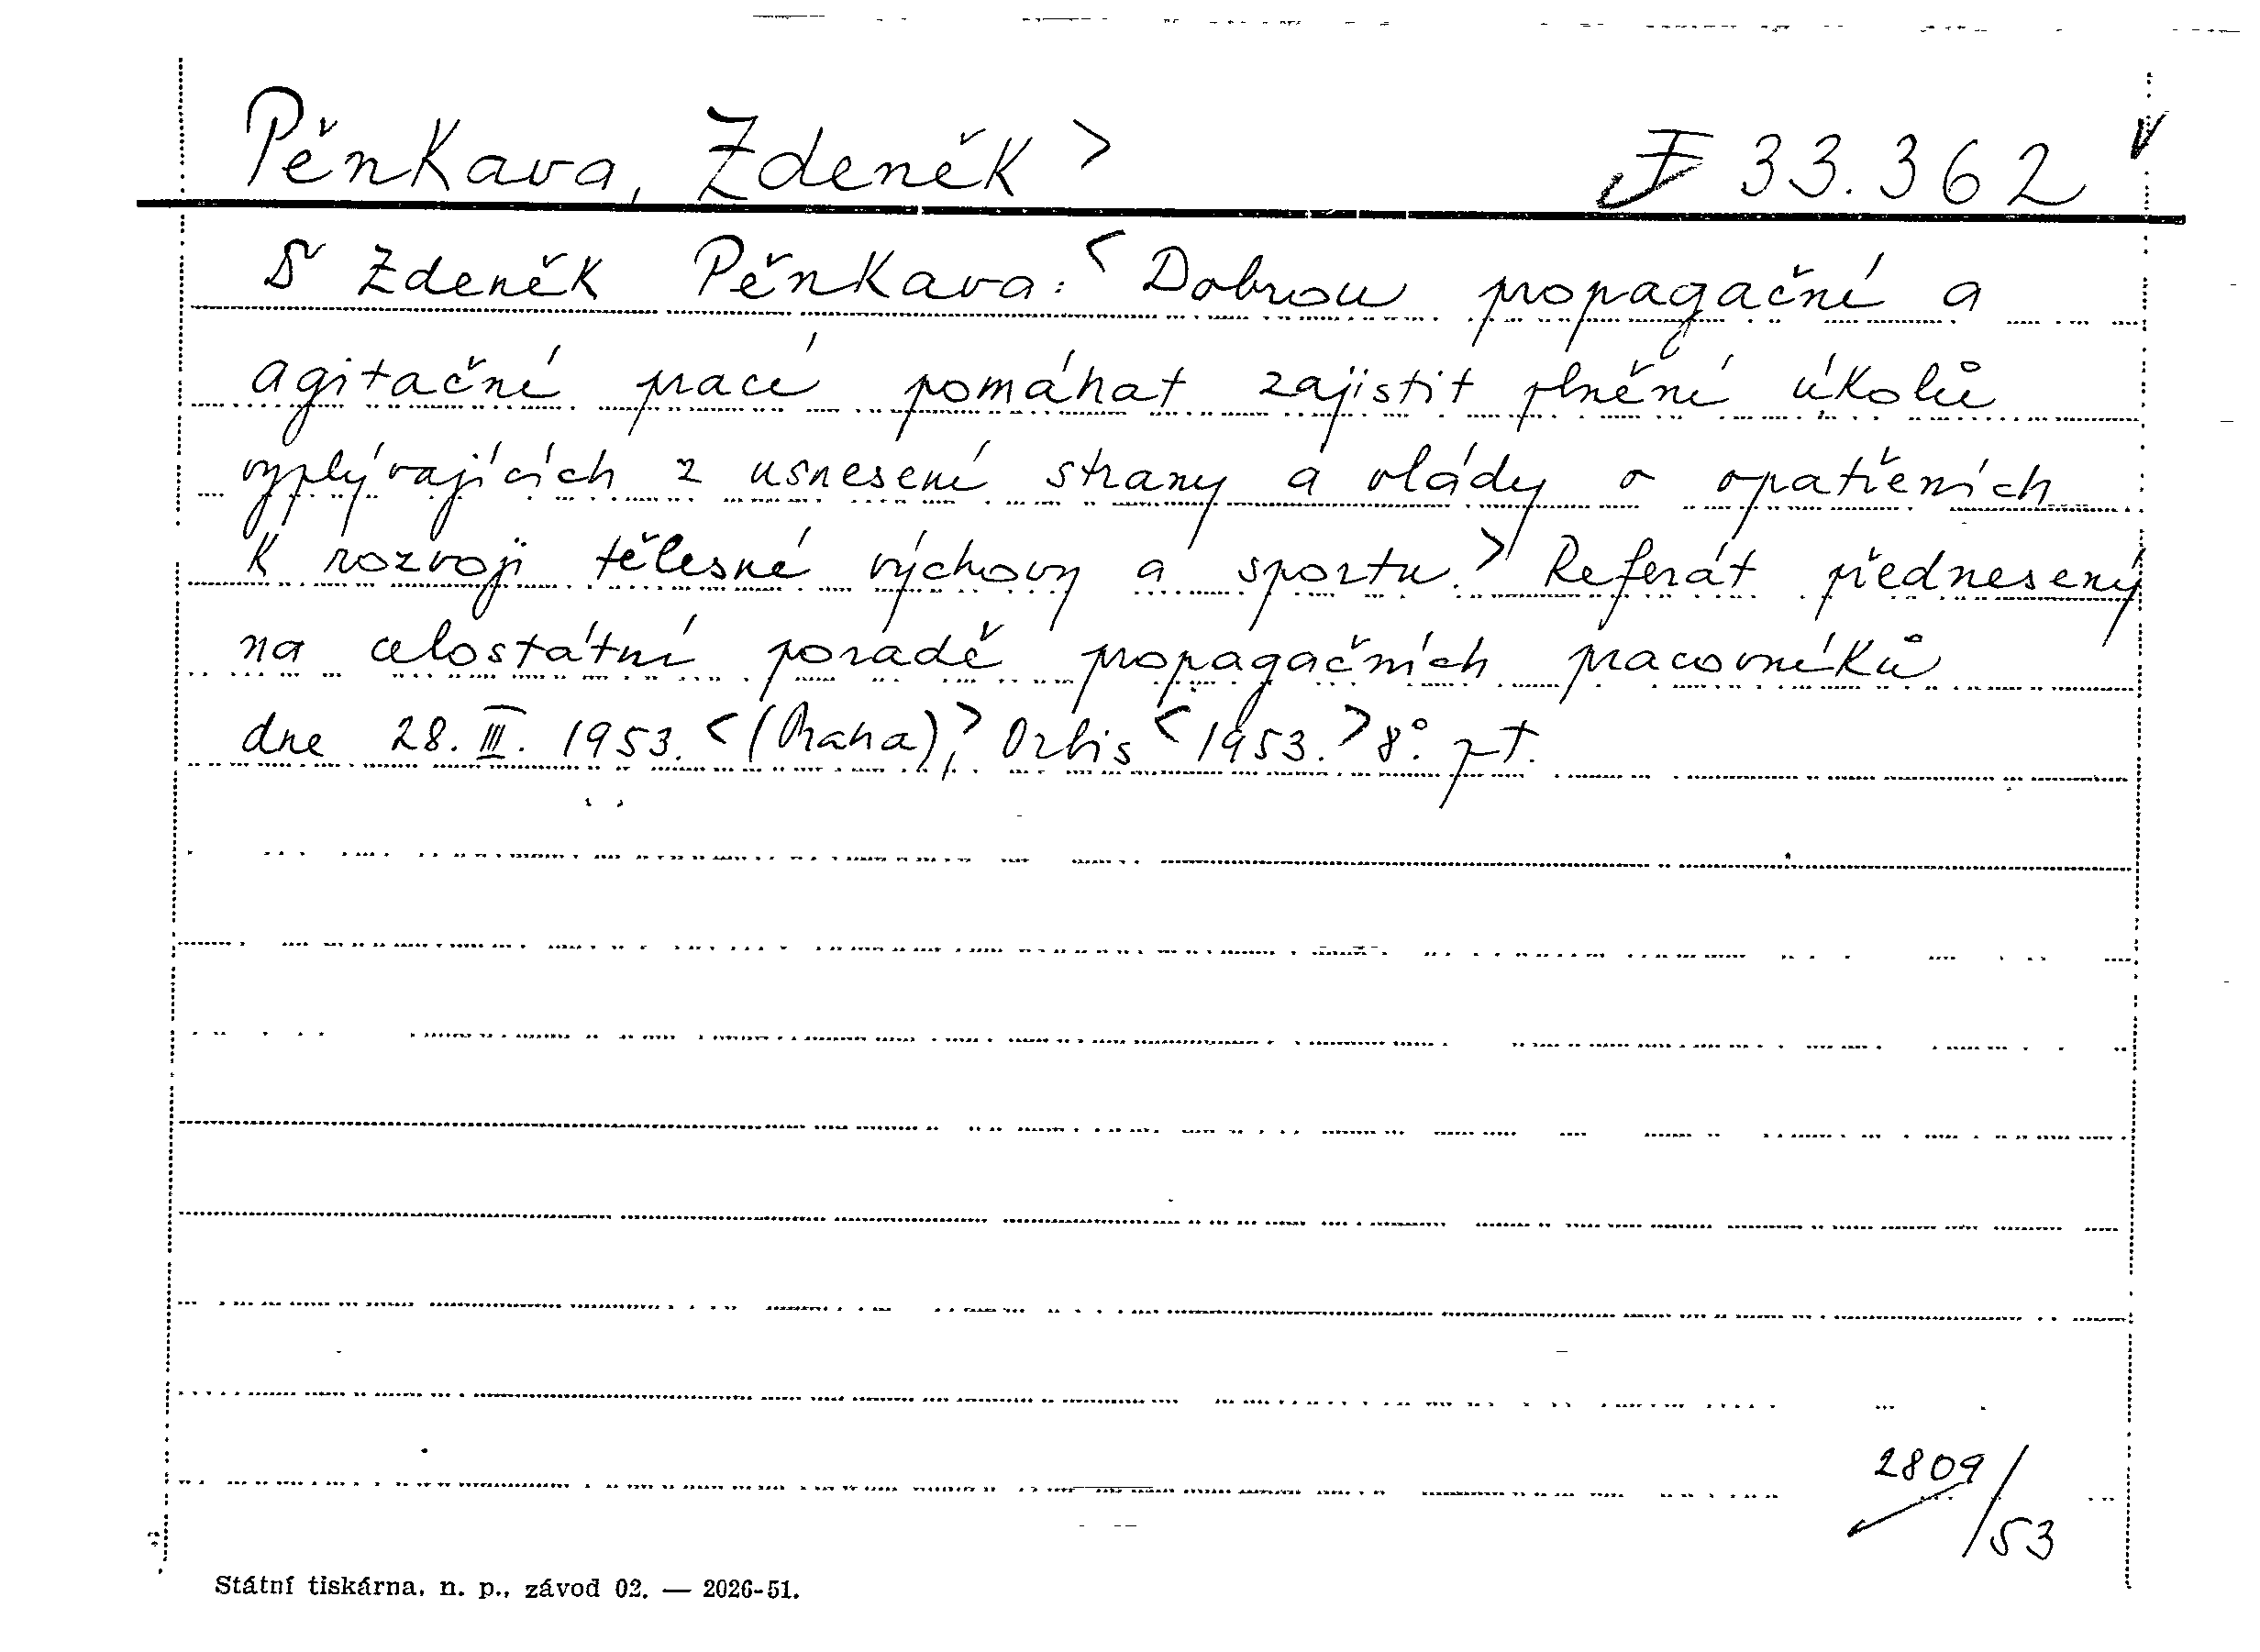 Pěnkava, Zdeněk > F 33.362
Zdeněk Pěnkava: < Dobrou propagační a
agitační prací pomáhat zajistit plnění úkolů
vyplývajících z usnesení strany a vlády o opatřeních
k rozvoji tělesné výchovy a sportu. > Referát přednesený
na celostátní poradě propagačních pracovníků
dne 28. III. 1953. < (Praha), > Orbis < 1953. > 8°. pt.
2809/53
Státní tiskárna, n. p., závod 02. — 2026-51.